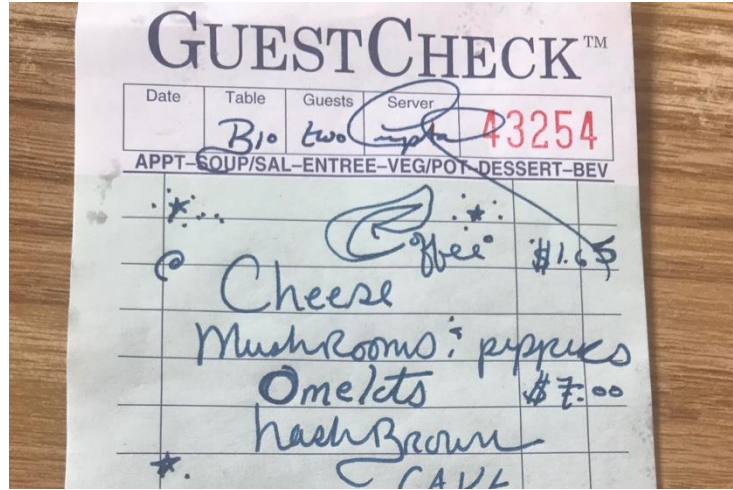 GUESTCHECK™
Date Table Guests Server
B10 two 43254
APPT–SOUP/SAL–ENTREE–VEG/POT–DESSERT–BEV
Coffee $1.65
Cheese
MushRooms & peppers
Omelets $7.00
hashBrown
CAKE